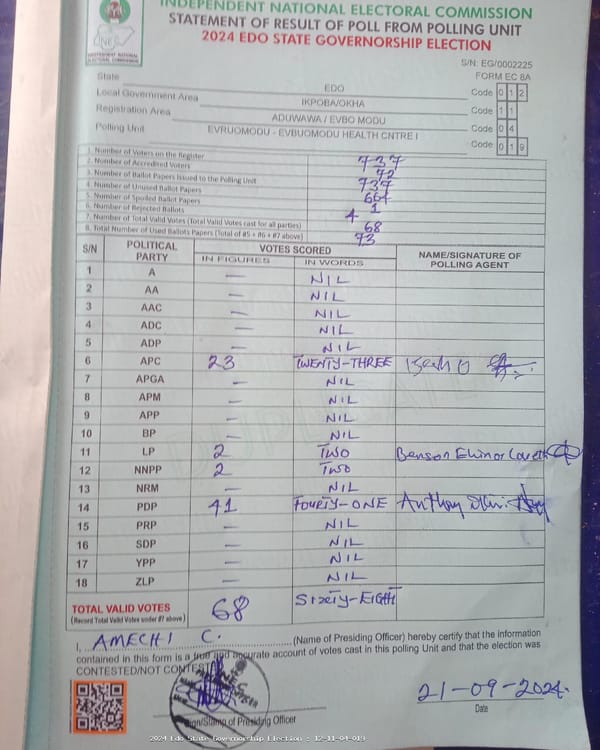 INDEPENDENT NATIONAL ELECTORAL COMMISSION
STATEMENT OF RESULT OF POLL FROM POLLING UNIT
2024 EDO STATE GOVERNORSHIP ELECTION
S/N: EG/0002225
FORM EC 8A
State EDO Code 0 1 2
Local Government Area IKPOBA/OKHA Code 1 1
Registration Area ADUWAWA / EVBO MODU Code 0 4
Polling Unit EVRUOMODU - EVBUOMODU HEALTH CNTRE I Code 0 1 9
1. Number of Voters on the Register 737
2. Number of Accredited Voters 72
3. Number of Ballot Papers Issued to the Polling Unit 737
4. Number of Unused Ballot Papers 664
5. Number of Spoiled Ballot Papers 1
6. Number of Rejected Ballots 4
7. Number of Total Valid Votes (Total Valid Votes cast for all parties) 68
8. Total Number of Used Ballots Papers (Total of #5 + #6 + #7 above) 73
S/N POLITICAL PARTY VOTES SCORED NAME/SIGNATURE OF POLLING AGENT
IN FIGURES IN WORDS
1 A — NIL
2 AA — NIL
3 AAC — NIL
4 ADC — NIL
5 ADP — NIL
6 APC 23 TWENTY-THREE
7 APGA — NIL
8 APM — NIL
9 APP — NIL
10 BP — NIL
11 LP 2 TWO Benson
12 NNPP 2 TWO
13 NRM — NIL
14 PDP 41 FOURTY-ONE Anthony
15 PRP — NIL
16 SDP — NIL
17 YPP — NIL
18 ZLP — NIL
TOTAL VALID VOTES 68 SIXTY-EIGHT
(Record Total Valid Votes under #7 above)
I, AMECHI C. (Name of Presiding Officer) hereby certify that the information
contained in this form is a true and accurate account of votes cast in this polling Unit and that the election was
CONTESTED/NOT CONTESTED
21-09-2024.
Sign/Stamp of Presiding Officer Date
2024 Edo State Governorship Election : 12-11-04-019